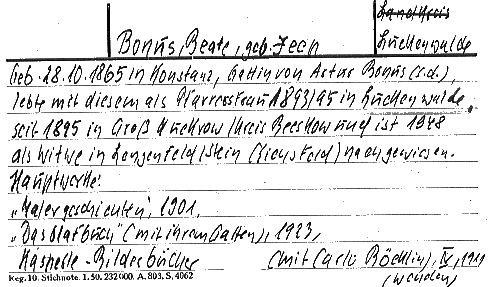 Landkreis
Luckenwalde
Bonus, Beate, geb. Jeep
Geb. 28.10.1865 in Konstanz, Gattin von Artur Bonus (s.d.),
lebte mit diesem als Pfarrersfrau 1893/95 in Luckenwalde,
seit 1895 in Groß Muckrow/Kreis Beeskow und ist 1948
als Witwe in nachgewiesen.
Hauptwerke:
„Malergeschichten", 1901,
„Das Olafbuch" (mit ihrem Gatten), 1923,
Kasperle-Bilderbücher (mit Carlo Böcklin), 1911
Reg. 10. Stichnote. 1. 50. 232000. A. 803. S. 4062